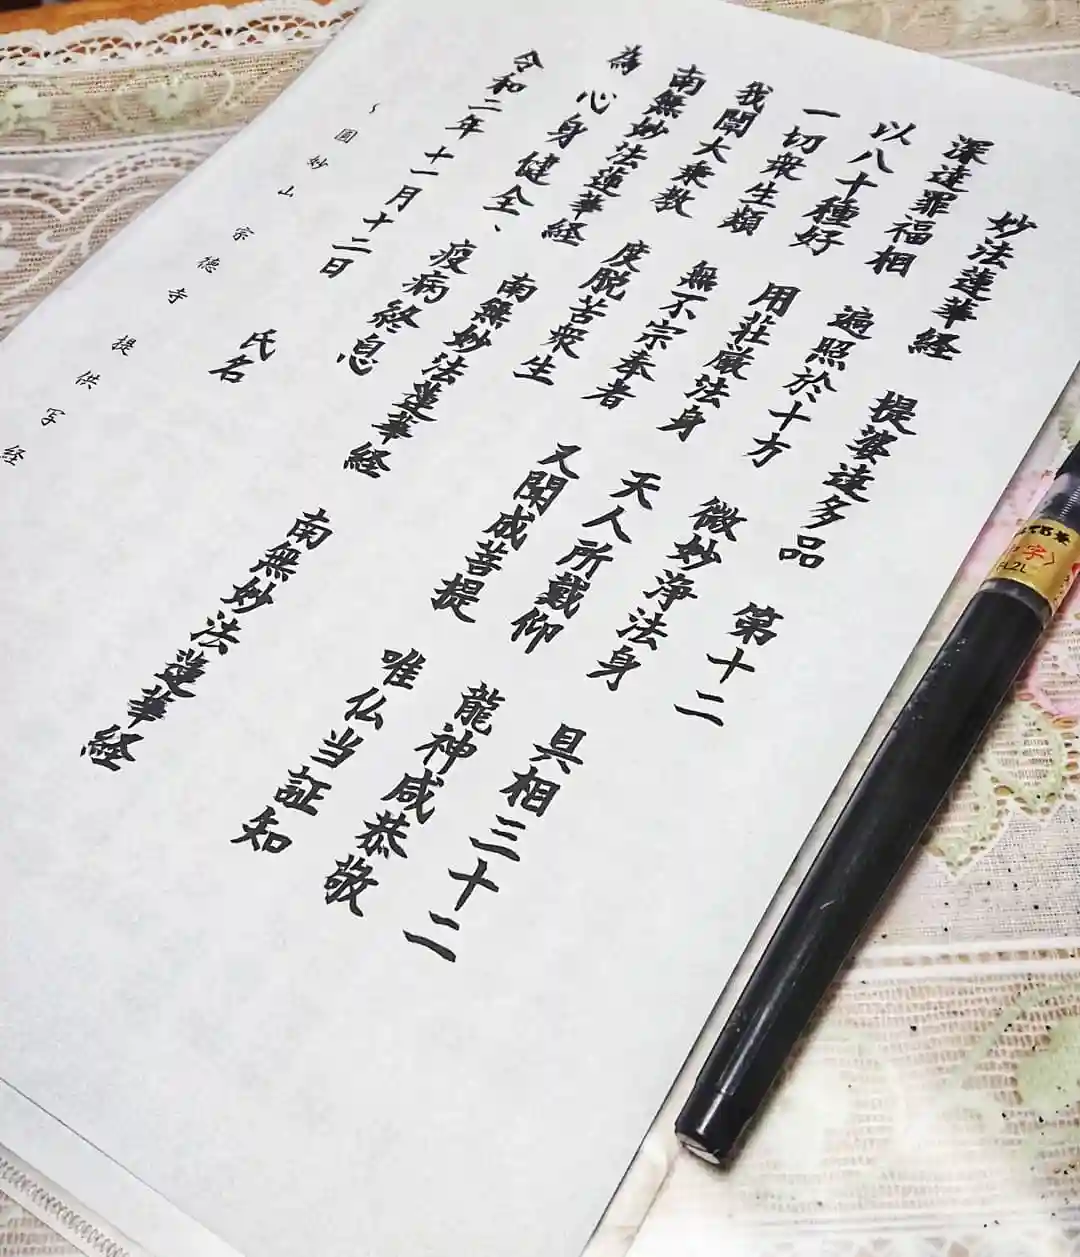 妙法蓮華経 提婆達多品 第十二
深達罪福相 遍照於十方 微妙浄法身 具相三十二
以八十種好 用荘厳法身 天人所戴仰 龍神咸恭敬
一切衆生類 無不宗奉者 又聞成菩提 唯仏当証知
我闡大乗教 度脱苦衆生
南無妙法蓮華経 南無妙法蓮華経 南無妙法蓮華経
為 心身健全、疫病終息
令和二年十一月十二日 氏名
~圓妙山 宗徳寺 提供写経
中字〉
FL2L